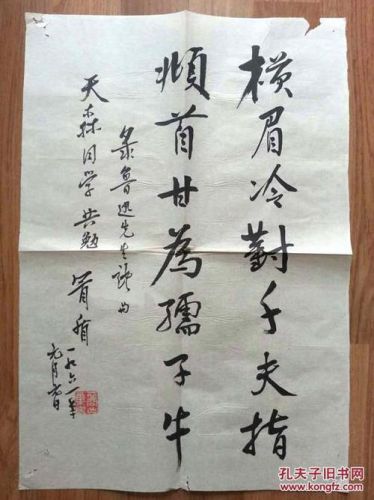 橫眉冷對千夫指
頫首甘為孺子牛
录魯迅先生诗句
天森同学共勉
一九六一年
元月
孔夫子旧书网
www.kongfz.com